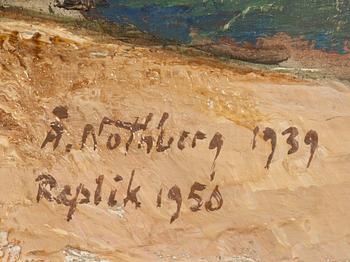 A. Nothberg 1939
Replik 1950